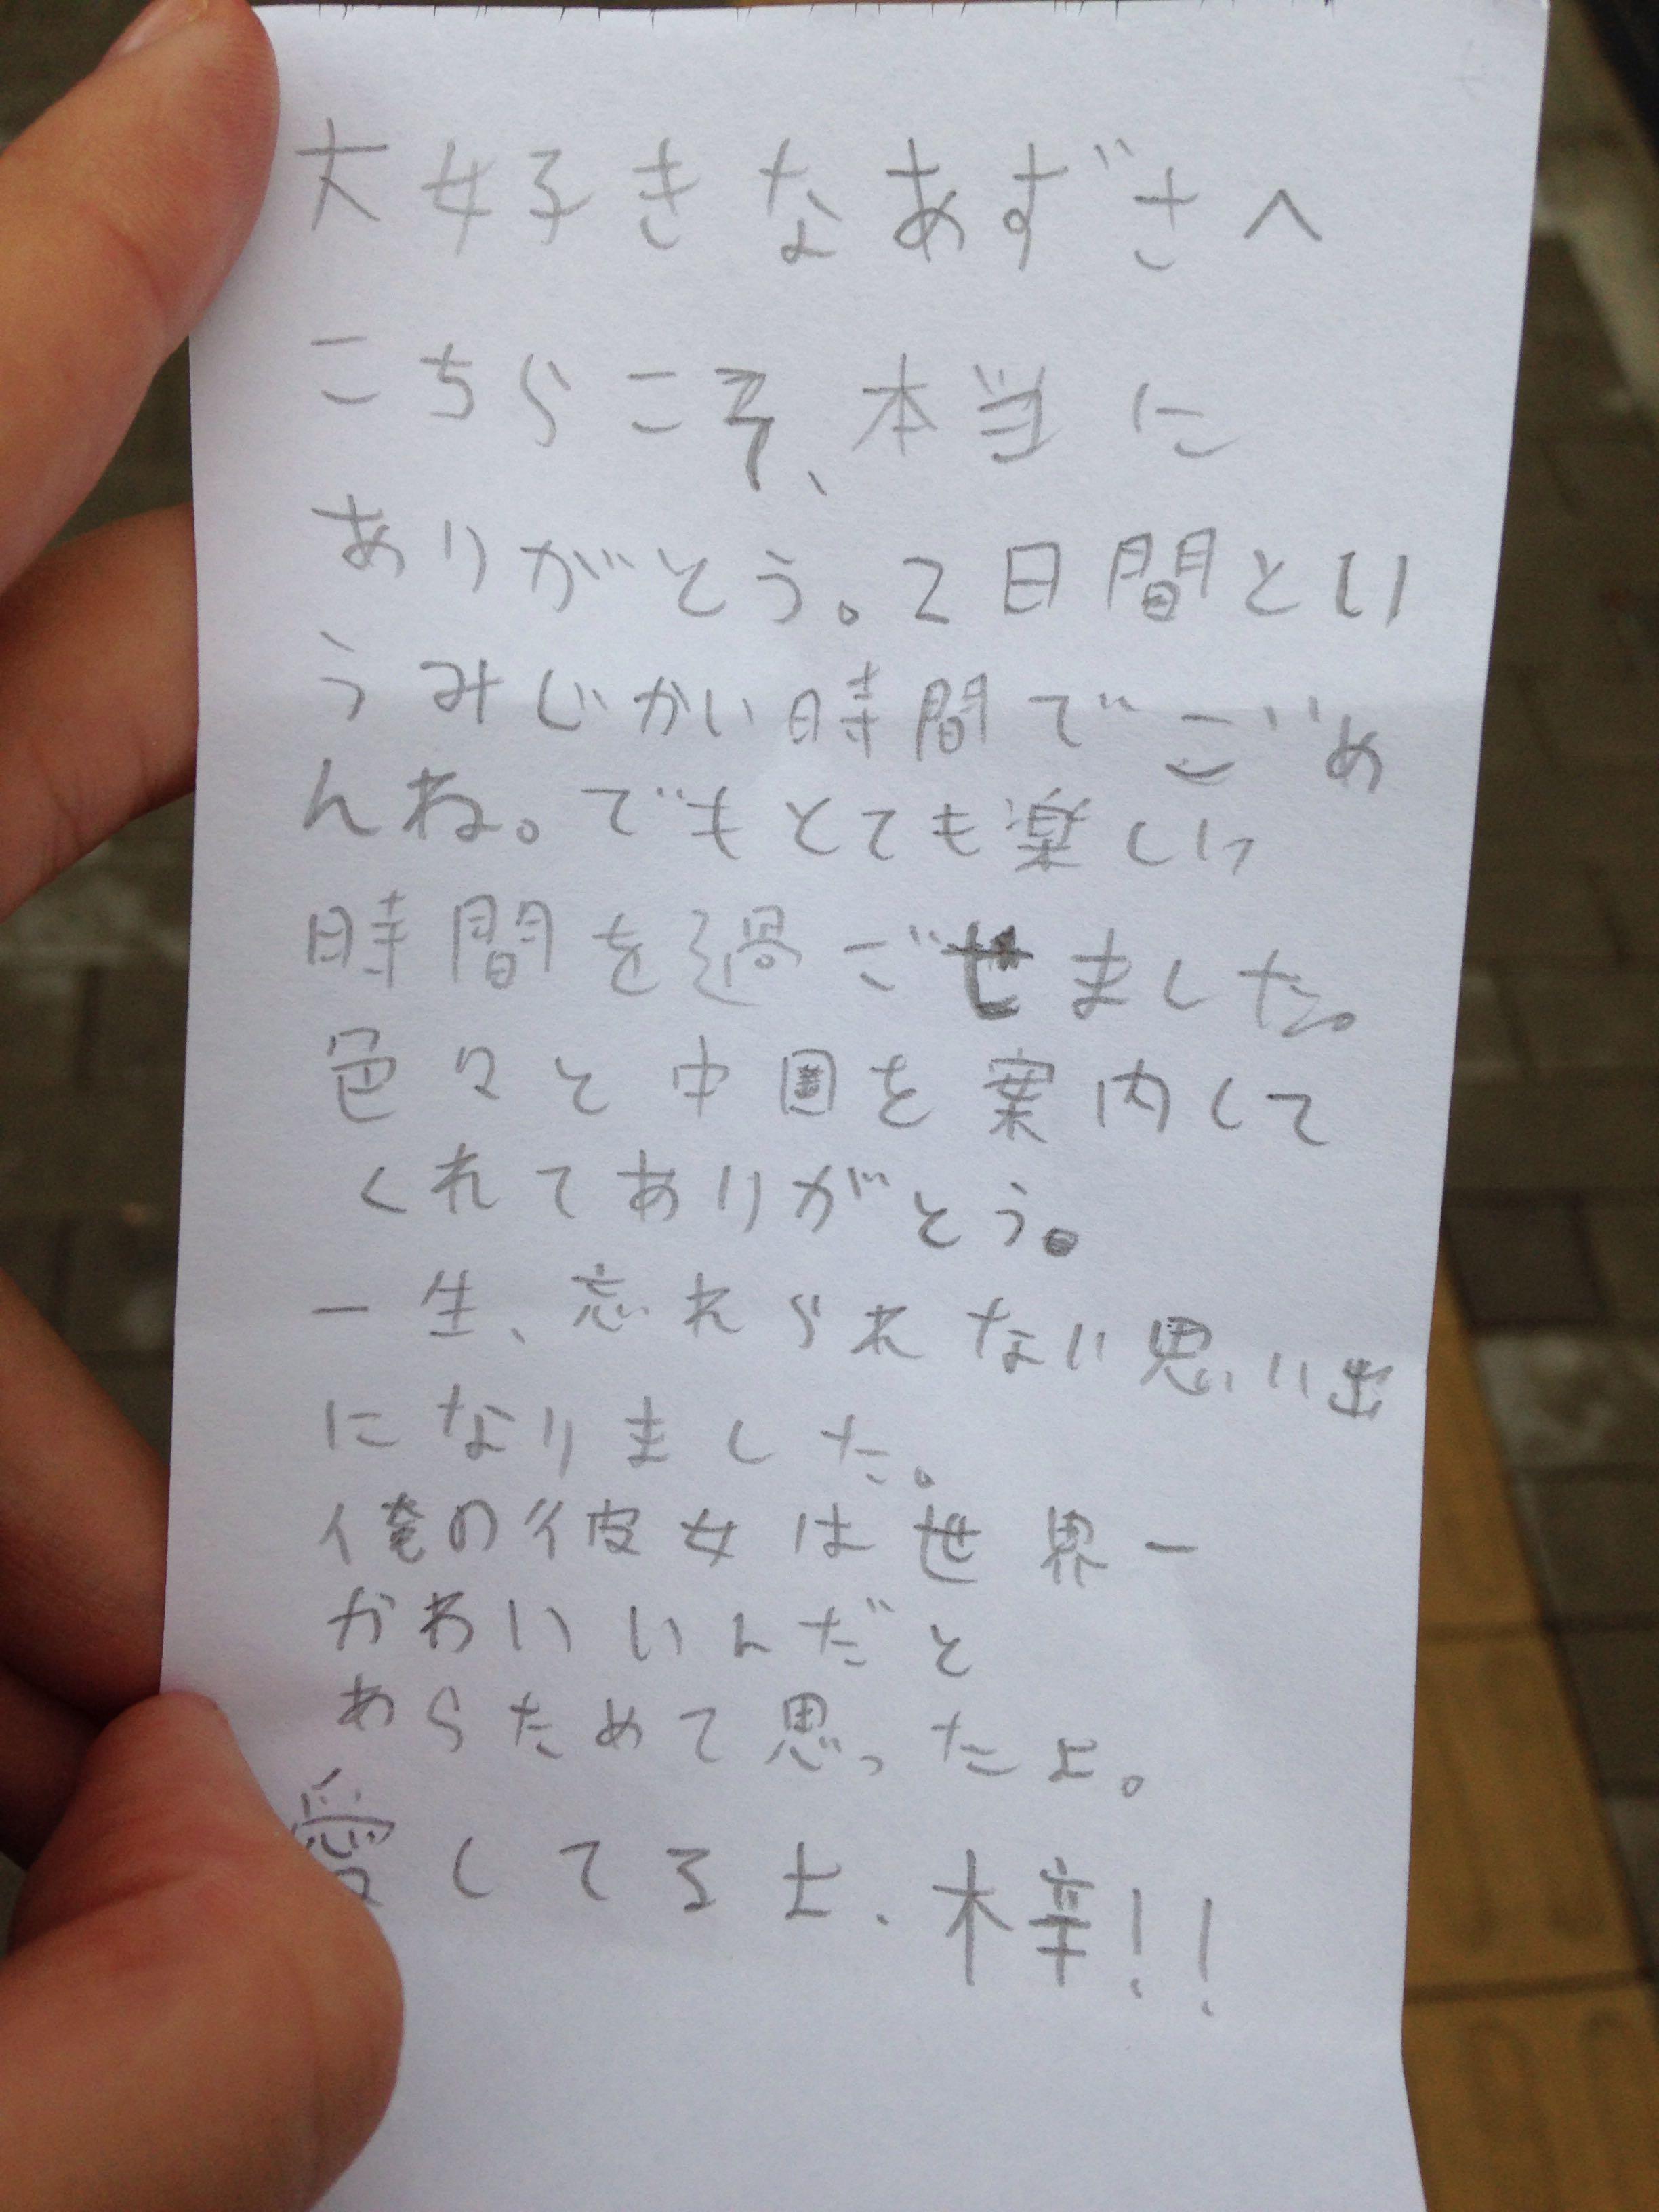 大好きなあずさへ
こちらこそ、本当に
ありがとう。2日間とい
うみじかい時間でごめ
んね。でもとても楽しい
時間を過ごせました。
色々と中国を案内して
くれてありがとう。
一生、忘れられない思い出
になりました。
俺の彼女は世界一
かわいいんだと
あらためて思ったよ。
愛してるよ、梓!!